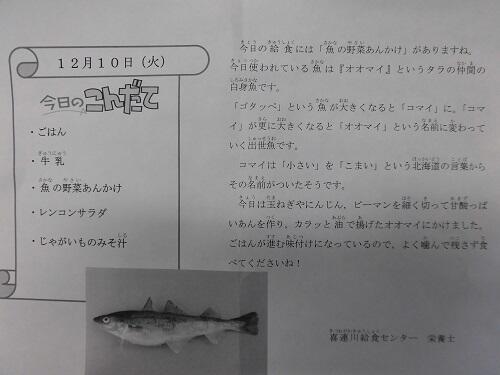 12月10日（火）
今日のこんだて
・ごはん
・牛乳
・魚の野菜あんかけ
・レンコンサラダ
・じゃがいものみそ汁
今日の給食には「魚の野菜あんかけ」がありますね。
今日使われている魚は『オオマイ』というタラの仲間の
白身魚です。
「ゴタッペ」という魚が大きくなると「コマイ」に。「コマ
イ」が更に大きくなると「オオマイ」という名前に変わって
いく出世魚です。
コマイは「小さい」を「こまい」という北海道の言葉から
その名前がついたそうです。
今日は玉ねぎやにんじん、ピーマンを細く切って甘酸っぱ
いあんを作り、カラッと油で揚げたオオマイにかけました。
ごはんが進む味付けになっているので、よく噛んで残さず食
べてくださいね！
喜連川給食センター　栄養士